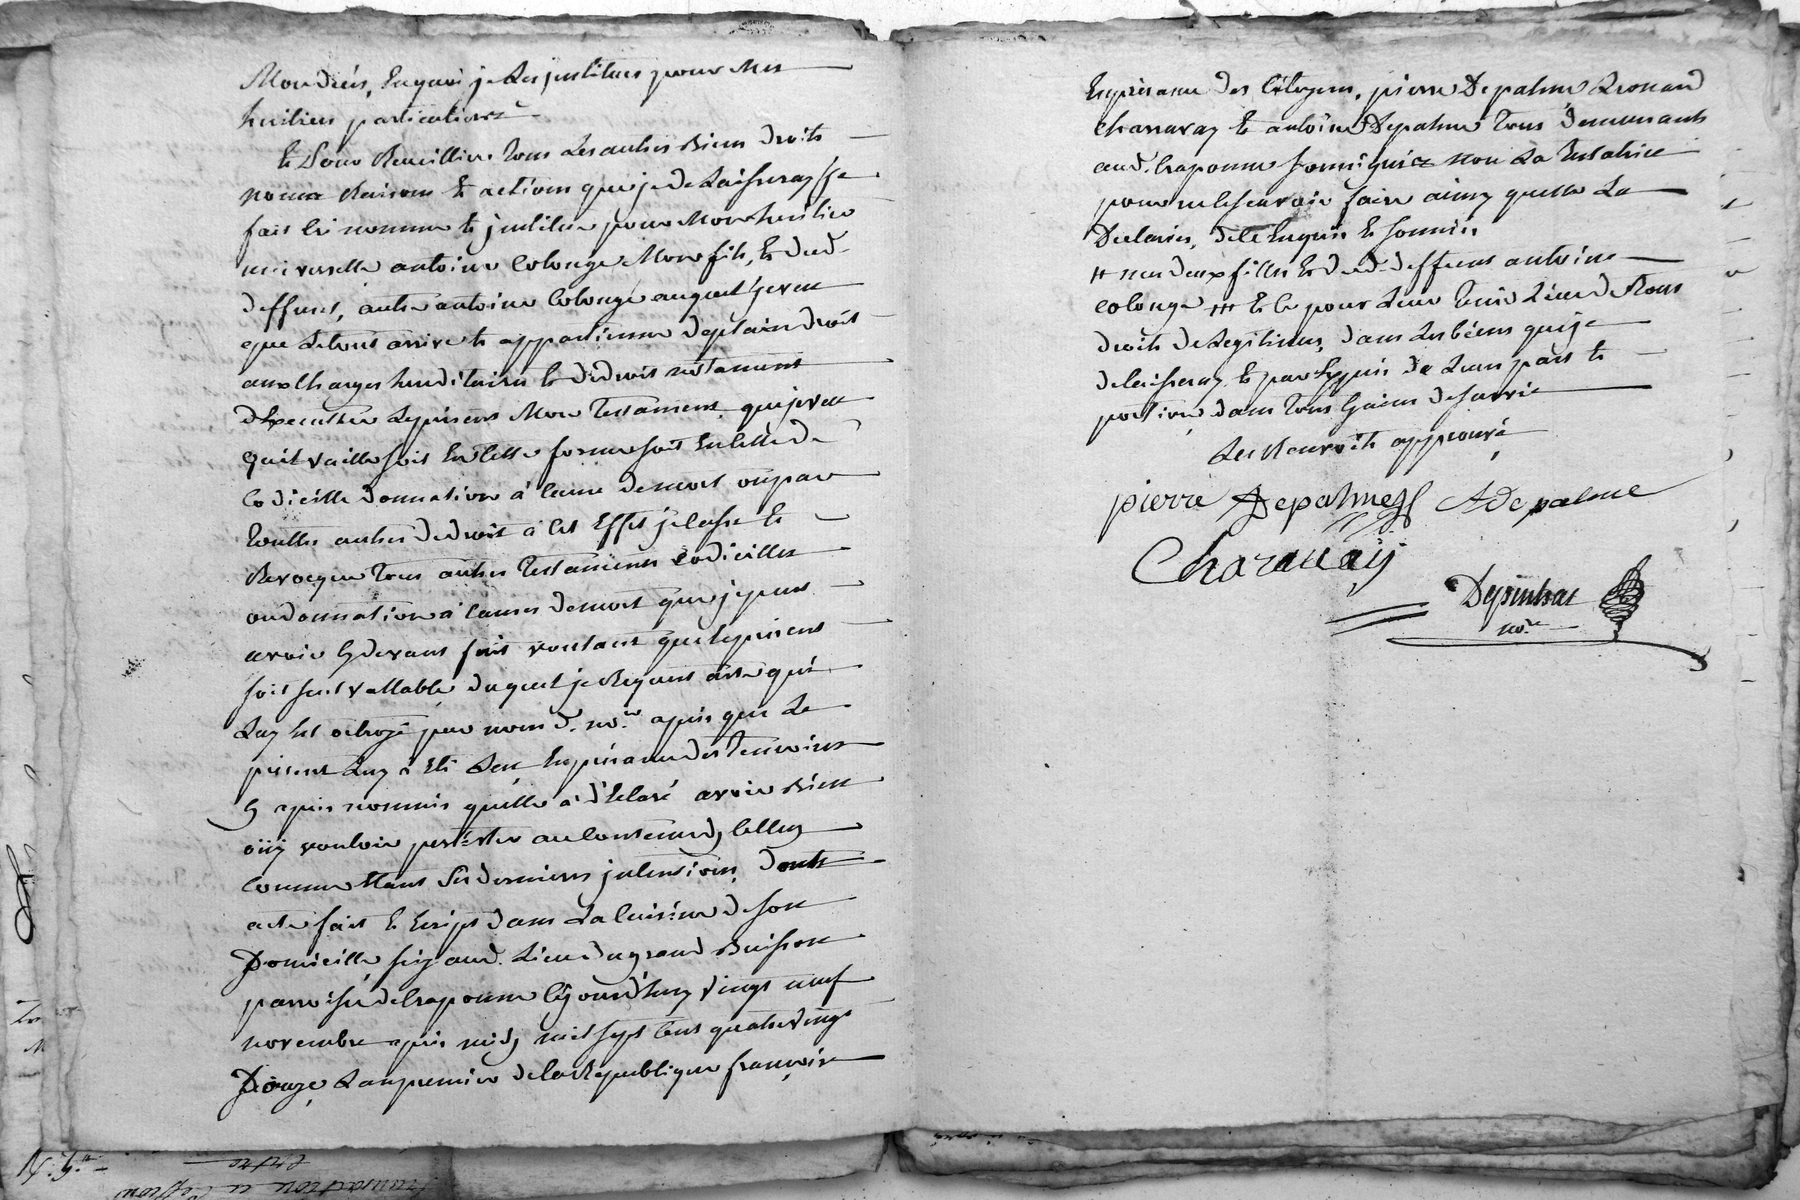 Mon deces, En quoi je Les justitues pour Mes
heritiers particuliers
Et Pour Recueillir Tous Les autres Biens droits
noms Raisons Et actions que je de Laisseray je
fais Et nomme Et justitue pour Mon heritier
universelle antoine Colonge Mon fils, Et dud.
deffunt, autre antoine Colonge auquel je veu
que Letout arrive Et appartienne de plain droit
aux Charges hereditaires Et de droit notament
d'Executer Le present Mon Testament, que je veu
quil vaille soit En telle forme soit En celle de
Codicille donnation à cause de mort ou par
touttes autres de droit à Cet Effet je Casse Et
Revoque Tous autres Testaments Codicilles
ou donnation à Causes de mort que je peus
avoir Cy devant fait voulant que Le present
soit seul vallable, duquel je Requiert acte qui
Luy Est octroyé par nous d. no.re après que Le
present Luy à Eté Leu En presence des Temoins
Cy après nommés quelle à déClaré avoir Bien
oüy vouloir persister au Contenu dy Celluy
Comme Etant Ses dernieres jntensions, dont
acte fait Et Ecript dans La Cuisine de son
Domicille, sis aud. Lieu du grand Buisson
parroisse de Craponne Cejourd'huy vingt neuf
novembre après midy mil sept Cent quatre vingt
Douze, L'an premier de la Republique françoise
En presence des Citoyens, pierre Depalme
Charavay Et antoine Depalme Tous demeurants
aud. Craponne soussignés non La Testatrice
pour ne le sçavoir faire ainsy quelle La
Declarés, de ce Enquise Et sommée
# mes deux filles Et dud. deffunt antoine
Colonge ## Et Ce pour Leur Tenir Lieu de Tous
droits de Legitimes, dans Les biens que je
delaisseray, Et par Exprès de Leurs part Et
portion, dans Tous Gains de survie
Les Renvoits approuvé
pierre Depalme ADepalme
Charavay
no.re